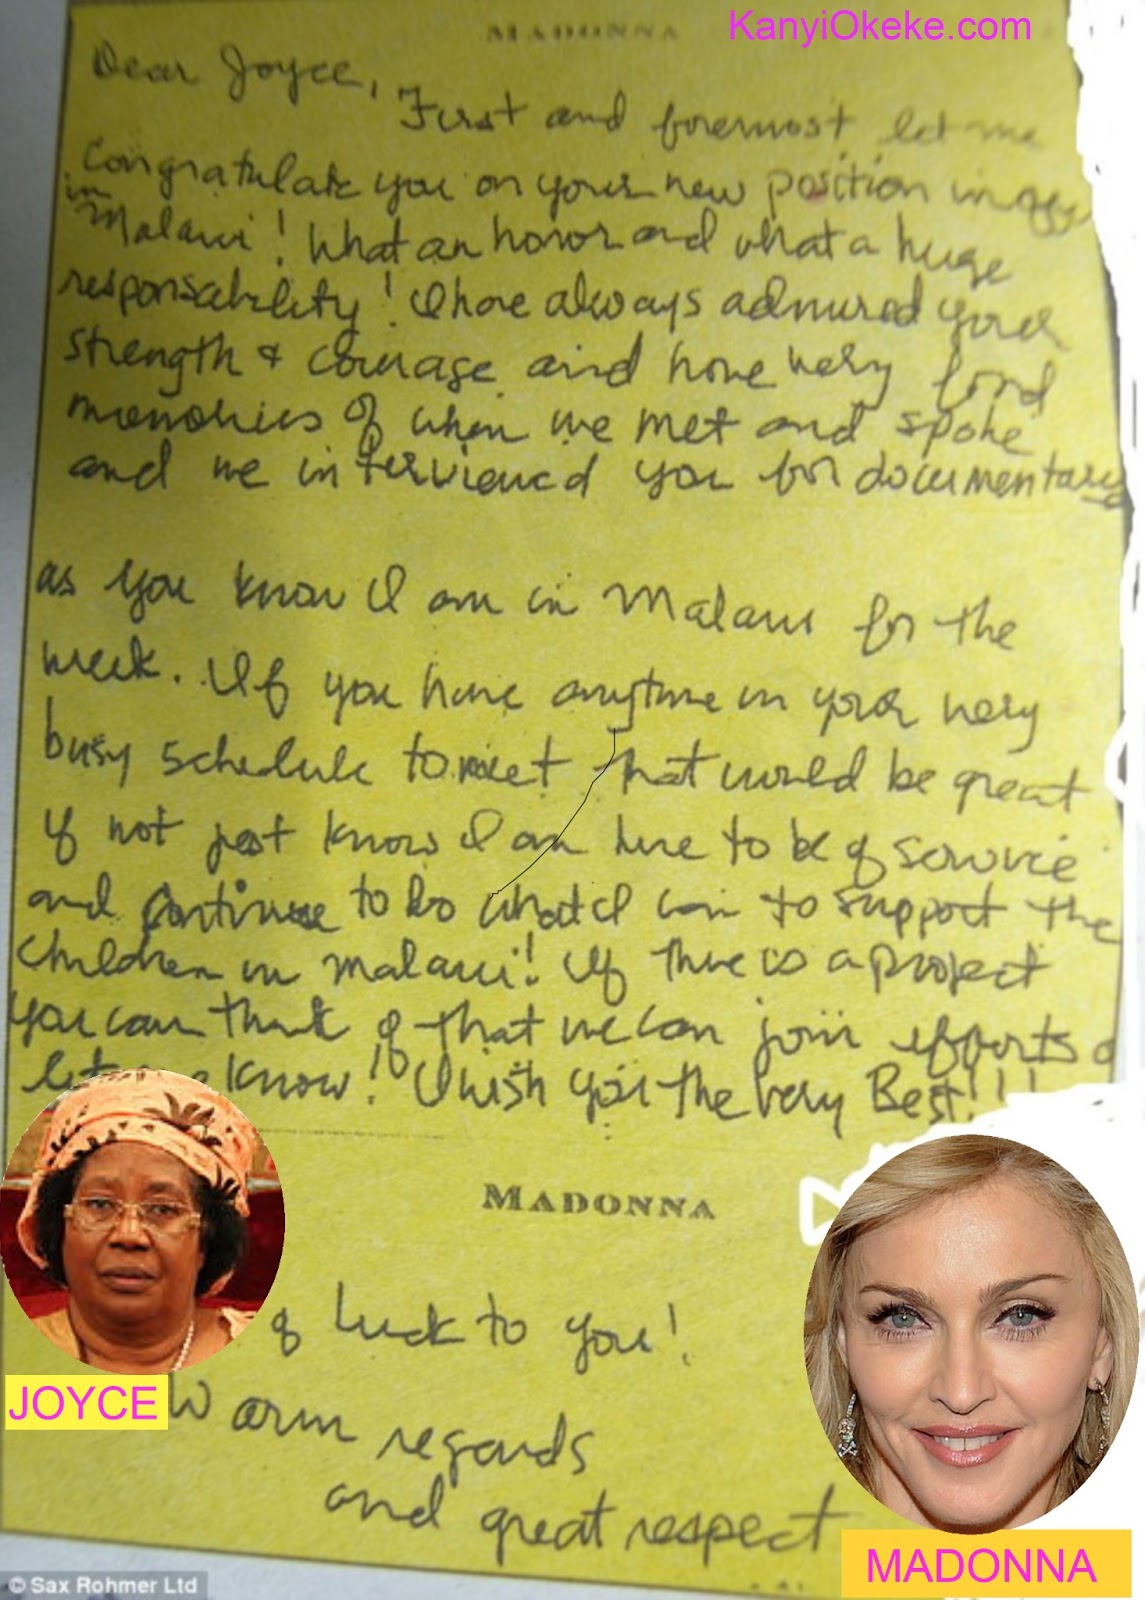 KanyiOkeke.com
MADONNA
Dear Joyce,
First and foremost let me
Congratulate you on your new position
in
Malawi! What an honor and what a huge
responsability! I have always admired your
strength & courage and have very fond
memories of when we met and spoke
and we interviewed you for documentary
as you know I am in Malawi for the
week. If you have anytime in your very
busy schedule to meet that would be great
if not just know I am here to be of service
and continue to do what I can to support the
Children in Malawi! If there is a project
you can think of that we can join efforts
let me know! I wish you the very Best!!!
MADONNA
of luck to you!
JOYCE
Warm regards
and great respect
MADONNA
© Sax Rohmer Ltd